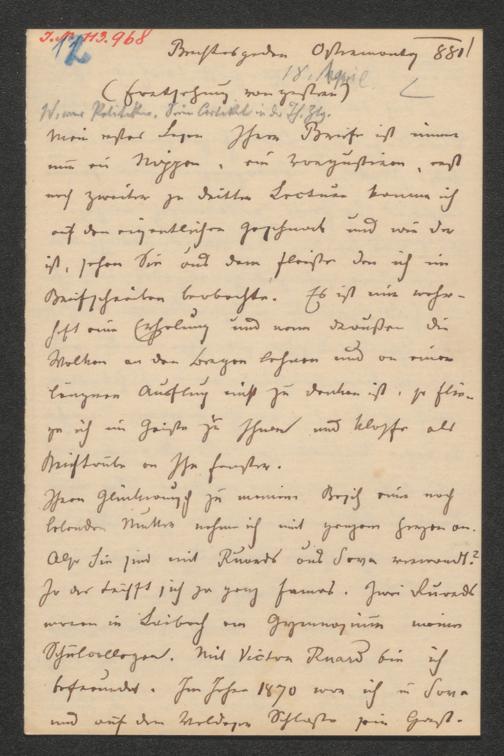 I.N. 113.968
12
Berchtesgaden Ostermontag 881
18. April
(Fortsetzung von gestern)
W. und Politiker. Sein Artikel in der Ztg.
Mein erstes Lesen Ihrer Briefe ist immer
nur ein Nippen, ein vorgustiren, erst
nach zweiter zu dritter Lecture komme ich
auf den eigentlichen Geschmack und wie der
ist, sehen Sie aus dem Fleisse den ich im
Briefschreiben beobachte. Es ist mir wahr-
haft eine Erholung und wenn draußen die
Wolken an den Bergen lehnen und an einen
längeren Ausflug nicht zu denken ist, so flie-
ge ich im Geiste zu Ihnen und klopfe als
an Ihr Fenster.
Ihren Glückwunsch zu meinem Besitz einer noch
lebenden Mutter nehme ich mit ganzem Herzen an.
Also Sie sind mit Ruards aus Sava verwandt?
Ja das trifft sich ja ganz famos. Zwei Ruards
waren in Laibach am Gymnasium meine
Schulcollegen. Mit Victor Ruard bin ich
befreundet. Im Jahre 1870 war ich in Sava
und auf dem Veldeser Schlosse sein Gast.